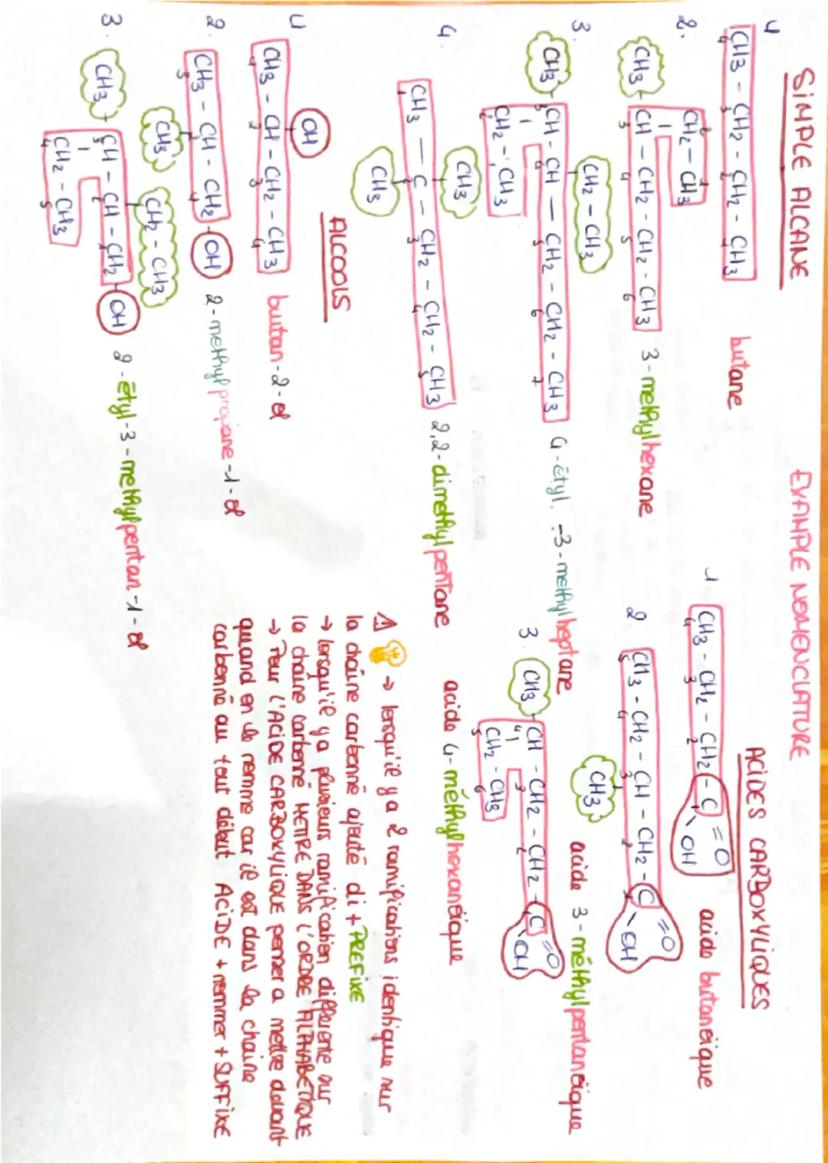 EXAMPLE NOMENCLATURE
SIMPLE ALCANE
1/ CH3 - CH2 - CH2 - CH3 butane
4 3 2 1
2. CH2 - CH3
2 1
CH3 - CH - CH2 - CH2 - CH3 3-méthylhexane
3 4 5 6
3. CH2 - CH3
CH3 - CH - CH - CH2 - CH2 - CH3 4-étyl-3-méthylheptane
3 4 5 6 7
CH2 - CH3
2 1
4. CH3
CH3 - C - CH2 - CH2 - CH3 2,2-diméthylpentane
CH3
ALCOOLS
1/ OH
CH3 - CH - CH2 - CH3 butan-2-ol
1 2 3 4
2. CH3 - CH - CH2 - OH 2-méthylpropane-1-ol
CH3
3. CH2 - CH3
CH3 - CH - CH - CH2 - OH 2-étyl-3-méthylpentan-1-ol
CH2 - CH3
4 5
ACIDES CARBOXYLIQUES
1. CH3 - CH2 - CH2 - C = O acide butanoïque
4 3 2
OH
2. CH3 - CH2 - CH - CH2 - C = O
5 4 3 2 1
OH
CH3 acide 3-méthylpentanoïque
3. CH3 - CH - CH2 - CH2 - C = O
4 3 2
OH
CH2 - CH3
acide 4-méthylhexanoïque
⚠ 💡 → lorsqu'il y a 2 ramifications identique sur
la chaîne carbonné ajouté di + PREFIXE
→ lorsqu'il y a plusieurs ramification differente sur
la chaîne carbonné METTRE DANS L'ORDRE ALPHABETIQUE
→ Pour l'ACIDE CARBOXYLIQUE penser a mettre devant
quand on le nomme car il est dans la chaîne
carbonné au tout début ACIDE + nommer + SUFFIXE